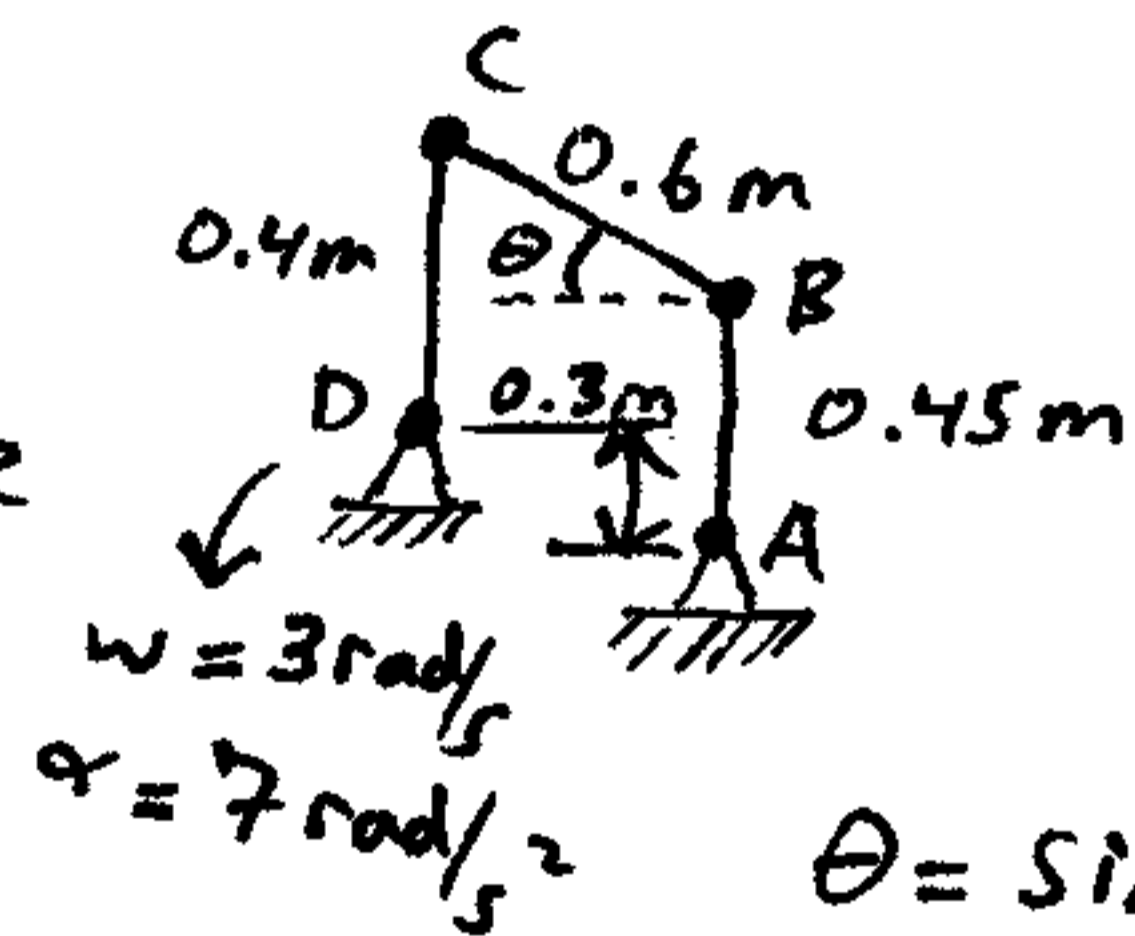 C
0.6m
0.4m
θ
B
D
0.3m
0.45m
A
w = 3rad/s
α = 7rad/s²
θ =